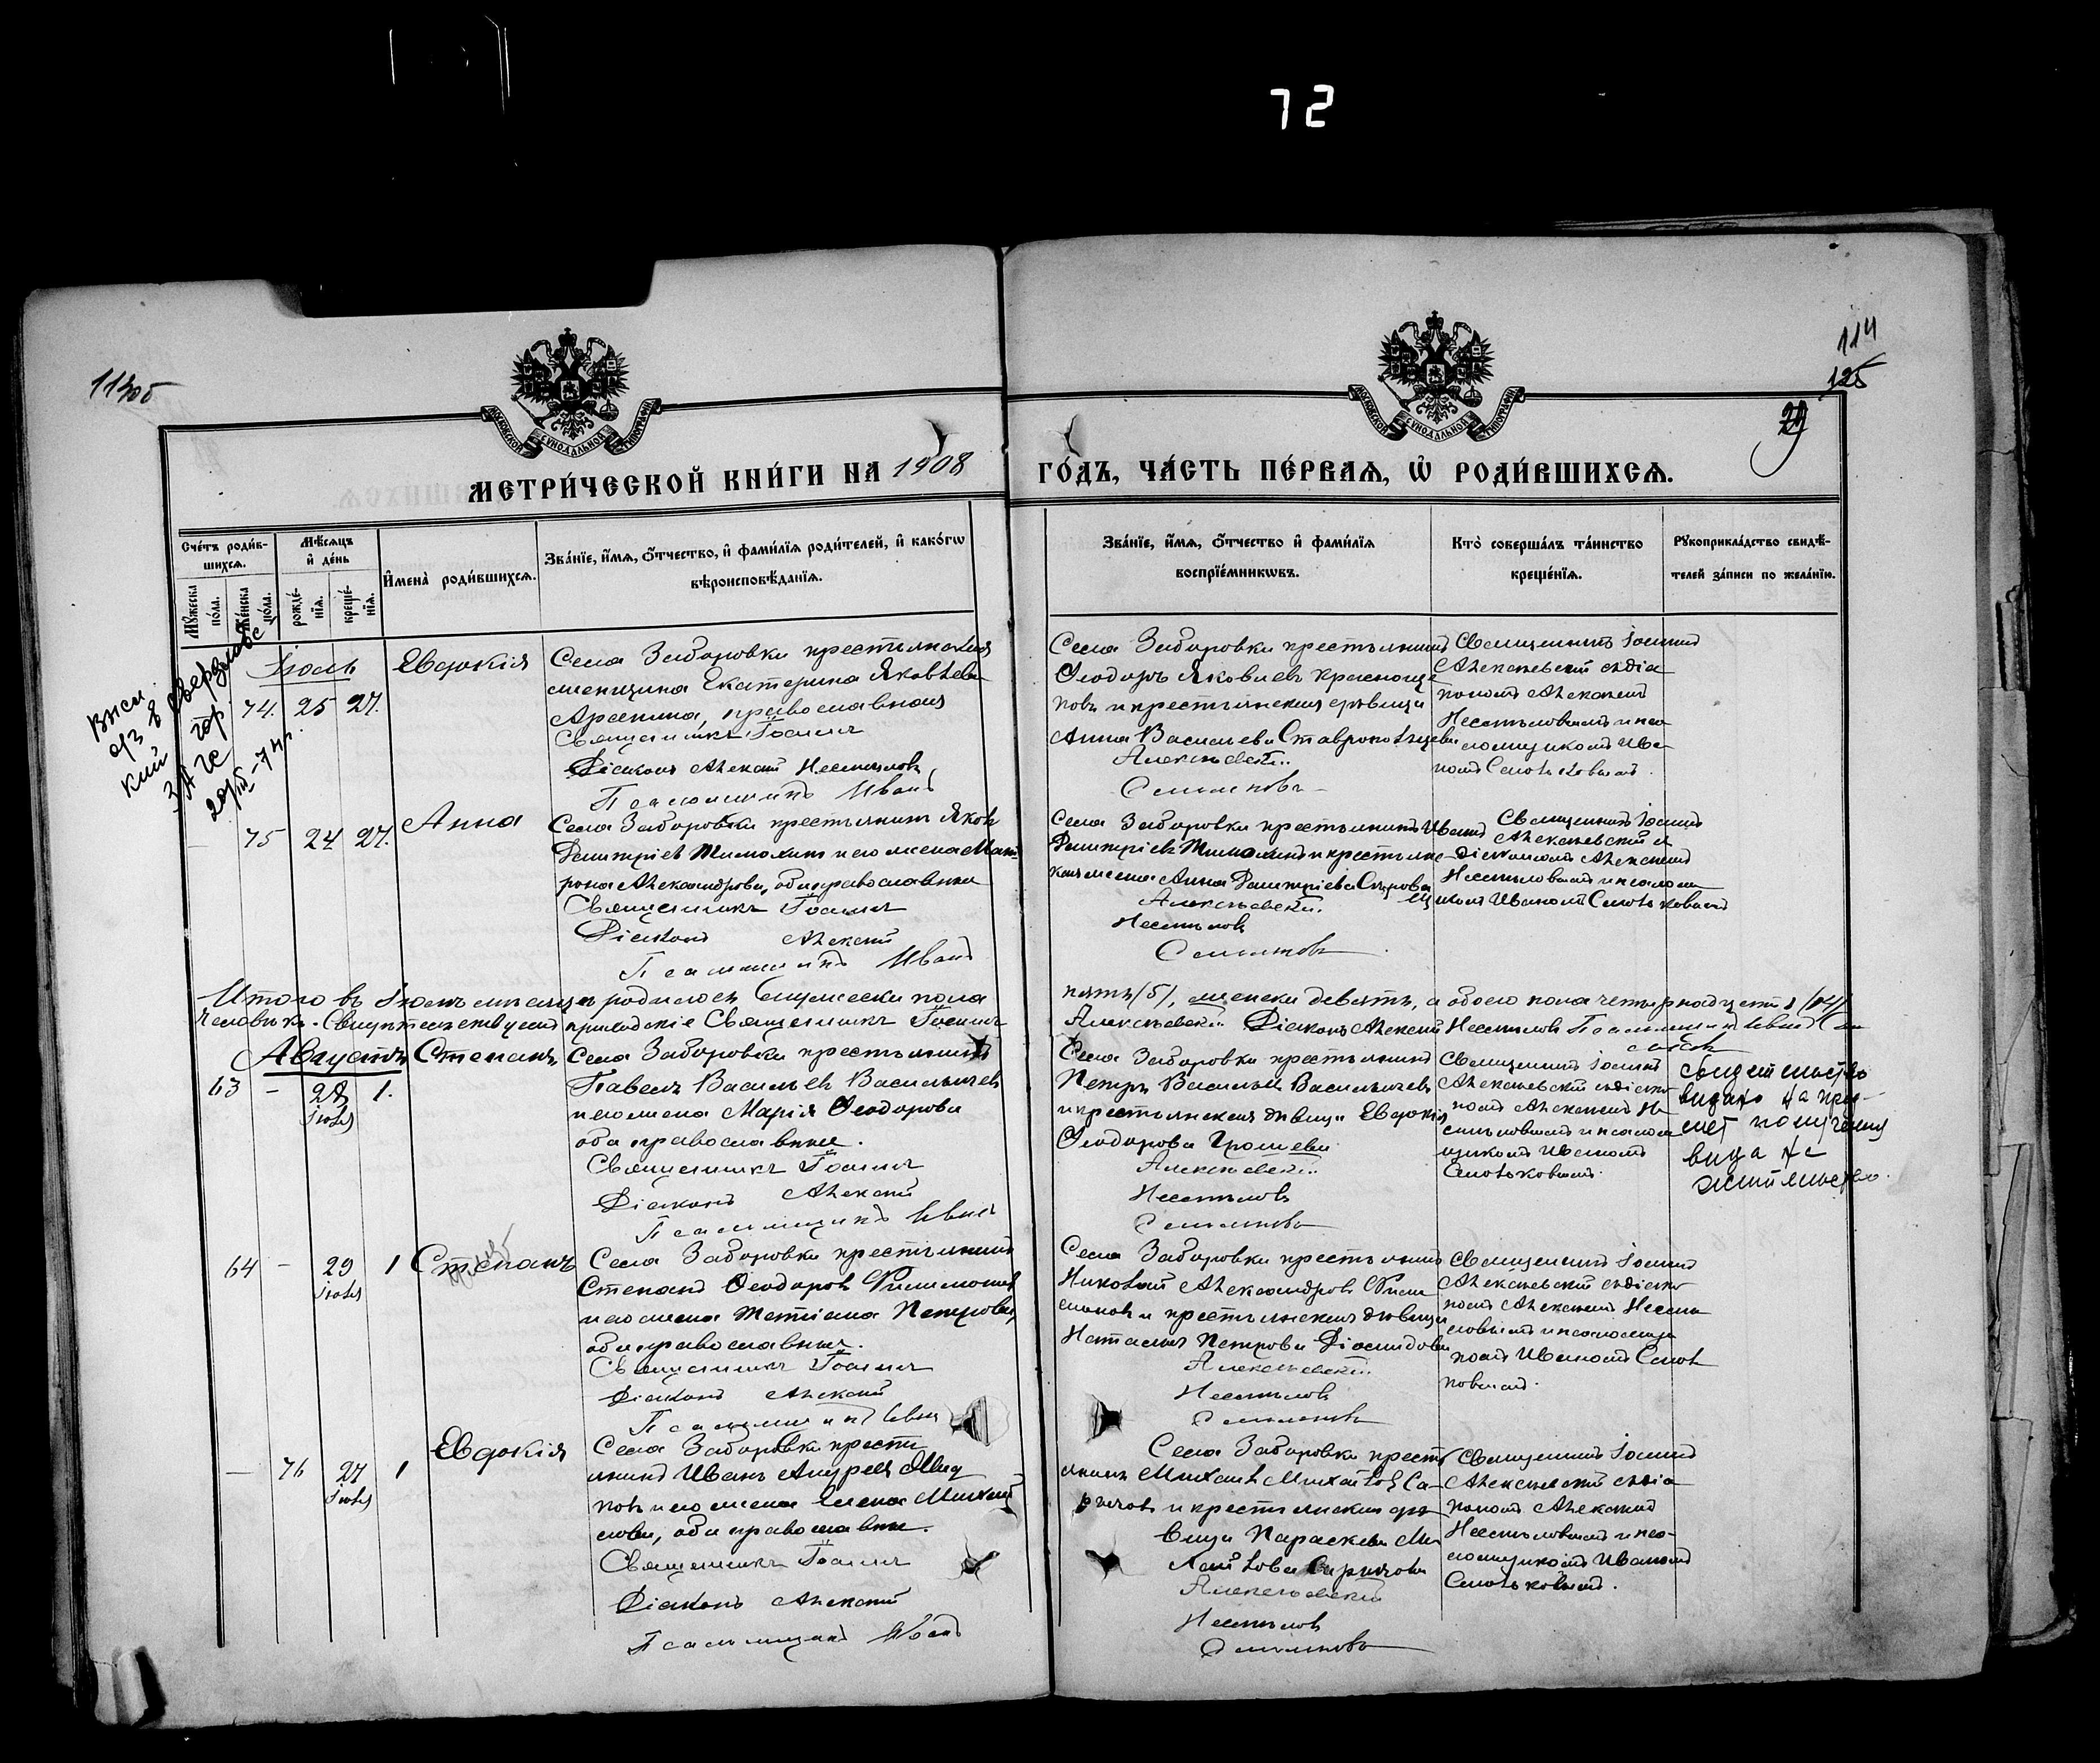 72
113об
114
125
29
МОСКОВСКОЙ СѴНОДАЛЬНОЙ ТИПОГРАФІИ
МОСКОВСКОЙ СѴНОДАЛЬНОЙ ТИПОГРАФІИ
МЕТРИ́ЧЕСКОЙ КНИ́ГИ НА 1908 ГО́ДЪ, ЧА́СТЬ ПЕ́РВАѦ, Ѡ҆ РОДИ́ВШИХСѦ.
Сче́тъ роди́в-
шихсѧ.
Мꙋ́жеска по́ла.
Же́нска по́ла.
Мѣ́сѧцъ
и҆ де́нь
рожде́-
нїѧ.
креще́-
нїѧ.
И҆мена̀ роди́вшихсѧ.
Зва́нїе, и҆́мѧ, ѻ҆́тчество, и҆ фами́лїѧ роди́телей, и҆ како́гѡ
вѣроисповѣ́данїѧ.
Зва́нїе, и҆́мѧ, ѻ҆́тчество и҆ фами́лїѧ
воспрїе́мникѡвъ.
Кто̀ соверша́лъ та́инство
креще́нїѧ.
Рꙋкоприкла́дство свидѣ́-
телей за́писи по жела́нїю.
в Свердловс
кий гор
ЗАГС
29/III-74г.
Іюль
74. 25 27.
Евдокія
Села Заборовки крестьянская
женщина Екатерина Яковлева
Арсенина, православная
Священникъ Іоаннъ
Діаконъ Алексій Несмѣловъ
Псаломщикъ Иванъ
Села Заборовки крестьянинъ
Ѳеодоръ Яковлевъ Краснощо
ковъ и крестьянская дѣвица
Анна Васильева
Алексѣевскій
Священникъ Іоаннъ
Алексѣевскій съ діа
кономъ Алексіемъ
Несмѣловымъ и пса
ломщикомъ Ива
номъ
— 75 24 27.
Анна
Села Заборовки крестьянинъ Яковъ
Димитріевъ Тимохинъ и его жена Мат
рона Александрова, оба православные
Священникъ Іоаннъ
Діаконъ Алексій
Псаломщикъ Иванъ
Села Заборовки крестьянинъ Иванъ
Димитріевъ Тимохинъ и крестьянс
кая жена Анна Димитріева
Алексѣевскій
Несмѣловъ
Священникъ Іоаннъ
Алексѣевскій съ
діакономъ Алексіемъ
Несмѣловымъ и псалом
щикомъ Иваномъ
Итого въ Іюлѣ мѣсяцѣ родилось мужеска пола пять (5), женска девять, а обоего пола четырнадцать (14)
человѣкъ. Священникъ Іоаннъ Алексѣевскій Діаконъ Алексій Несмѣловъ Псаломщикъ Иванъ
Августъ
63 - 28 1.
Іюля
Степанъ
Села Заборовки крестьянинъ
Павелъ Васильевъ Васильичевъ
и его жена Марія Ѳеодорова
оба православные.
Священникъ Іоаннъ
Діаконъ Алексій
Псаломщикъ Иванъ
Села Заборовки крестьянинъ
Петръ Васильевъ Васильичевъ
и крестьянская дѣвица Евдокія
Ѳеодорова Грошева
Алексѣевскій
Несмѣловъ
Священникъ Іоаннъ
Алексѣевскій съ діако
номъ Алексіемъ Не
смѣловымъ и псалом
щикомъ Иваномъ
Свидетельство
выдано на пред-
мет получения
вида на
жительство.
64 - 29 1
Іюля
Степанъ
Села Заборовки крестьянинъ
Степанъ Ѳеодоровъ Филимоновъ
и его жена Татіана Петрова,
оба православные.
Священникъ Іоаннъ
Діаконъ Алексій
Псаломщикъ Иванъ
Села Заборовки крестьянинъ
Николай Александровъ Фили
моновъ и крестьянская дѣвица
Наталья Петрова Діомидова
Алексѣевскій
Несмѣловъ
Священникъ Іоаннъ
Алексѣевскій съ діако
номъ Алексіемъ Несмѣ
ловымъ и псаломщи
комъ Иваномъ
— 76 27 1
Іюля
Евдокія
Села Заборовки кресть
янинъ Иванъ Андреевъ
и его жена Елена Михай
лова, оба православные.
Священникъ Іоаннъ
Діаконъ Алексій
Псаломщикъ Иванъ
Села Заборовки кресть
янинъ Михаилъ Михайловъ
и крестьянская дѣ
вица Параскева Ми
хайлова
Алексѣевскій
Несмѣловъ
Священникъ Іоаннъ
Алексѣевскій съ діа
кономъ Алексіемъ
Несмѣловымъ и пса-
ломщикомъ Иваномъ